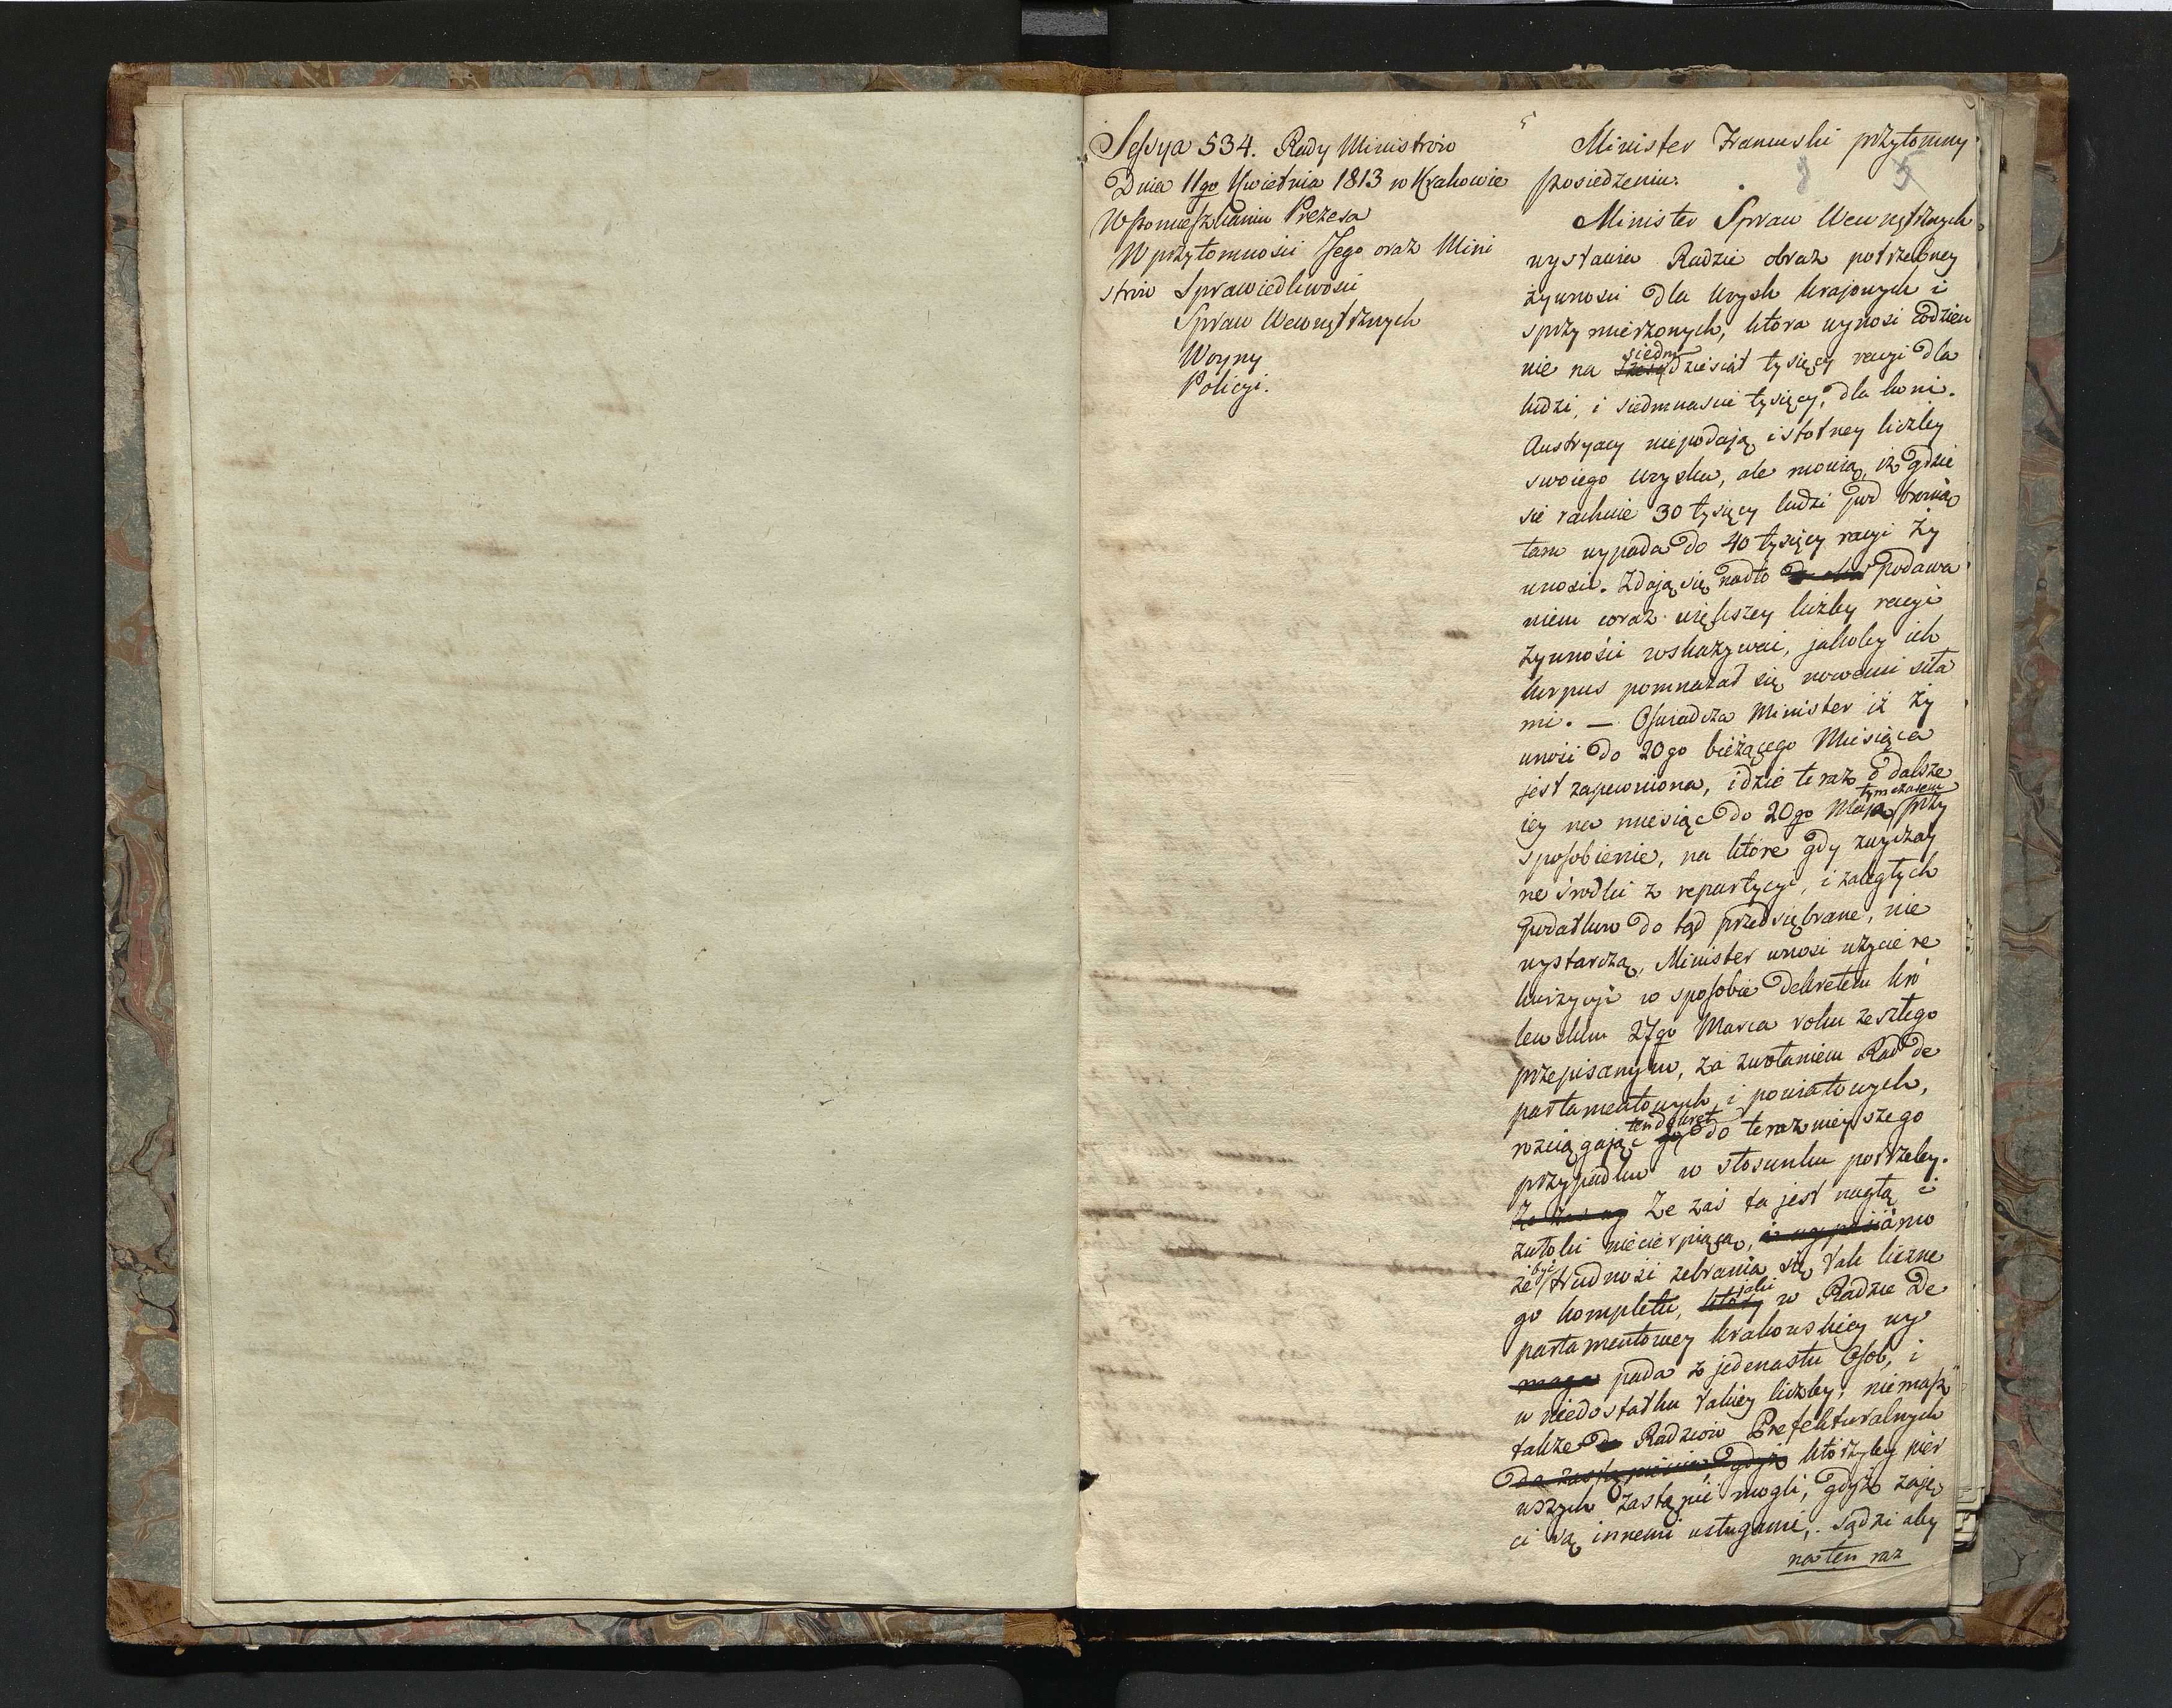 Sessya 534. Rady Ministrow
Dnia 11go Kwietnia 1813 w Krakowie
W pomieszkaniu Prezesa
W przytomności Jego oraz Mini
strow Sprawiedliwości
Spraw Wewnętrznych
Woyny
Policyi.
Minister Francuski przytomny
posiedzeniu.
Minister Spraw Wewnętrznych
wystawia Radzie obraz potrzebney
żywności dla woysk krajowych i
sprzymierzonych, ktora wynosi codzien
nie na siedmdziesiąt tysięcy racyi dla
ludzi, i siedmnaście tysięcy, dla koni.
Austryacy niepodają istotney liczby
swoiego woyska, ale mowią, iż gdzie
się rachuie 30 tysięcy ludzi pod bronią
tam wypada do 40 tysięcy racyi ży
wności. Zdają się nadto podawa
niem coraz większey liczby racyi
żywności wskazywać, jakoby ich
korpus pomnażał się nowemi siła
mi. — Oświadcza Minister iż ży
wność do 20go bieżącego Miesiąca
jest zapewniona, idzie teraz o dalsze
jey na miesiąc do 20go Maja tymczasem przy
sposobienie, na ktore gdy zwyczay
ne środki z repartycyi, i zaległych
podatkow do tąd przedsiębrane, nie
wystarczą, Minister wnosi użycie re
kwizycyi w sposobie Dekretem Kró
lewskim 27go Marca roku zeszłego
przepisanym, za zwołaniem Rad de
partamentowych i powiatowych,
rozciągając ten dekret do teraznieyszego
przypadku w stosunku potrzeby.
Ze zaś ta jest nagłą i
zwłoki niecierpiącą, a mo
że być trudność zebrania się tak liczne
go kompletu, jaki w Radzie De
partamentowey krakowskiey wy
pada z jedenastu Osob, i
w niedostatku takiey liczby, niemasz
także Radzcow Prefekturalnych
ktorzyby pier
wszych zastąpić mogli, gdyż zaję
ci są innemi usługami, sądzi aby
na ten raz